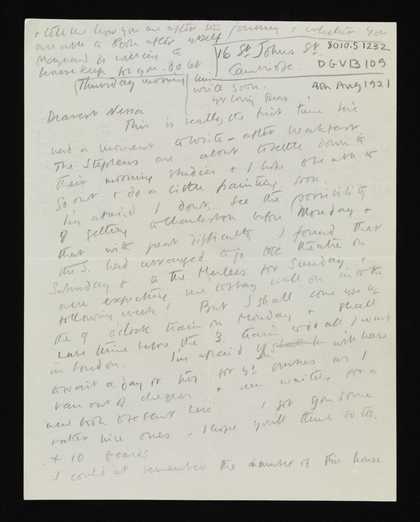 & tell me how you are after the journey & whether you
are able to look after yourself
Maynard is
housekeep for you. Do let
16 St Johns St
8010.5.1252
Cambridge
DGVB109
(Thursday morning)
write soon.
yr loving
4th Aug 1921
Dearest Nessa
This is really the first time I've
had a moment to write - after breakfast.
The Stephens are about to settle down to
their morning studies & I hope to
go out & do a little painting soon.
I'm afraid I don't see the possibility
of getting to Charleston before Monday &
that with great difficulty. I found that
the S. had arranged to go to the theatre on
Saturday & to the for Sunday, &
were expecting me to stay well on into the
following week! But I shall come up by
the 9 o'clock train on Monday & shall
have time before the 3. train to do all I want
in London. I'm afraid will have
to wait a day or two for yr as I
ran out of cheques & am waiting for a
new book to be sent here. I got you some
rather nice ones - I hope you'll think so too.
+ 10
I could not remember the number of the house